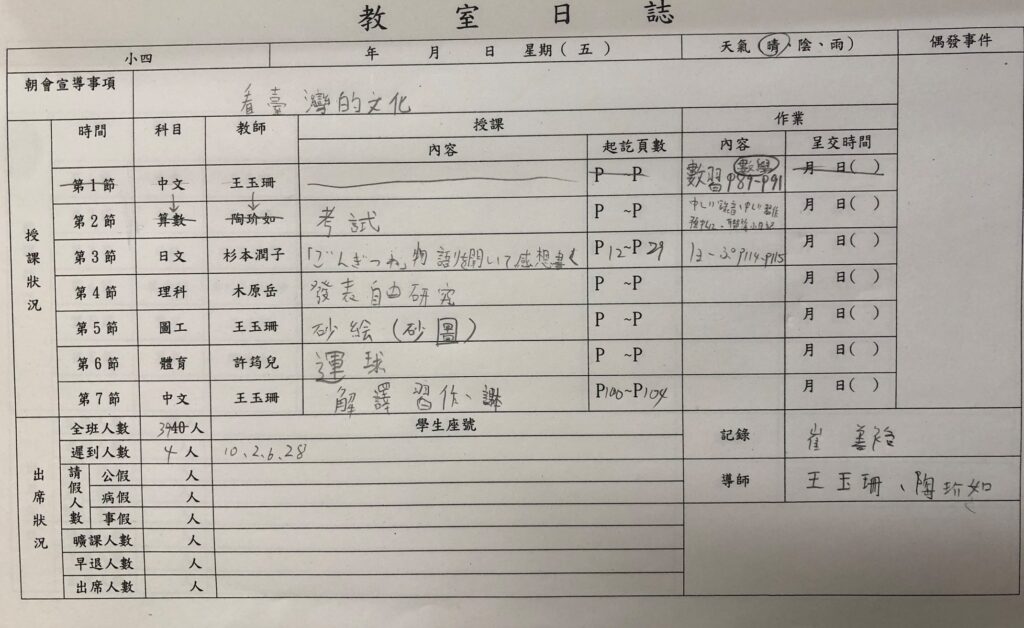 教室日誌
小四 年 月 日 星期(五) 天氣(晴、陰、雨) 偶發事件
朝會宣導事項 看臺灣的文化
授課狀況 時間 科目 教師 授課 作業
內容 起訖頁數 內容 呈交時間
第1節 中文 王玉珊 P ~P 數習 數學 P89-P91 月 日( )
第2節 算數 陶玠如 考試 P ~P 月 日( )
第3節 日文 杉本潤子 「ごんぎつね」物語 聞いて感想書く P12~P29 P114-P115 月 日( )
第4節 理科 木原岳 發表自由研究 P ~P 月 日( )
第5節 圖工 王玉珊 砂絵(砂圖) P ~P 月 日( )
第6節 體育 許筠兒 運球 P ~P 月 日( )
第7節 中文 王玉珊 解譯習作、 P100~P104 月 日( )
出席狀況 全班人數 3940人 學生座號 記錄 崔善
遲到人數 4人 10、2、6、28
請假人數 公假 人 導師 王玉珊、陶玠如
病假 人
事假 人
曠課人數 人
早退人數 人
出席人數 人